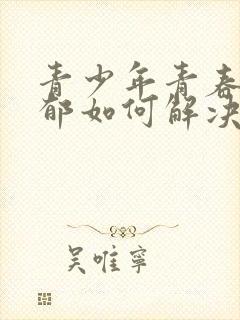 青少年青春
郁如何解决
吴唯宁